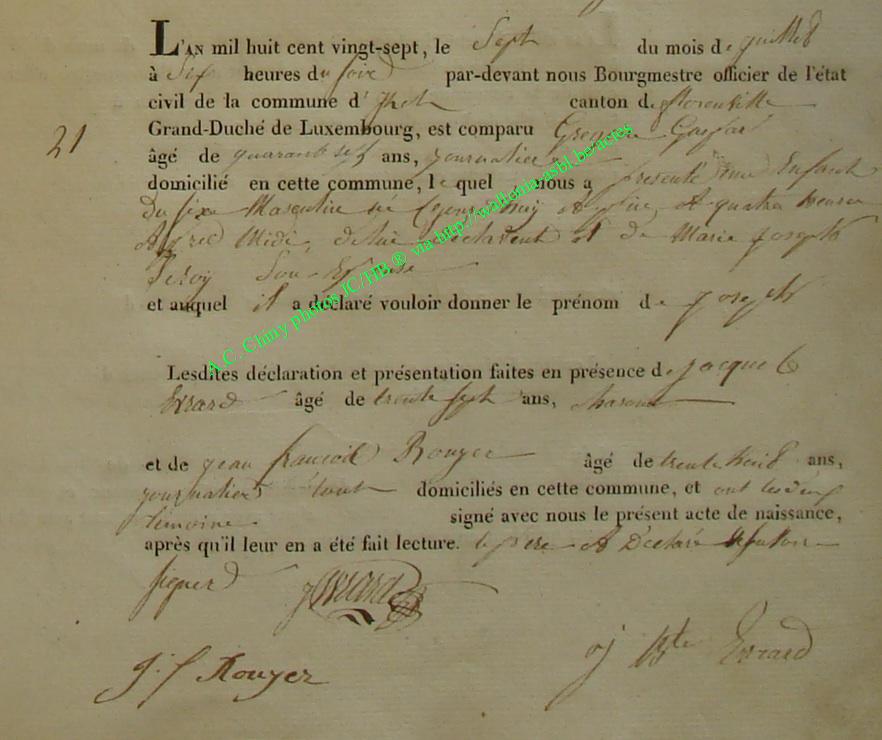 L'AN mil huit cent vingt-sept, le Sept du mois de juillet
à Six heures du soir par-devant nous Bourgmestre officier de l'état
civil de la commune d' canton de florenville
21 Grand-Duché de Luxembourg, est comparu Gregoire Gaspar
âgé de quarante six ans, journalier
domicilié en cette commune, lequel nous a presenté une Enfant
Du sixe Masculin né A quatre heures
Midi, de lui declarent et de Marie joseph
Son Epouse
et auquel il a déclaré vouloir donner le prénom de joseph
Lesdites déclaration et présentation faites en présence de jacque
Evrard âgé de trente sept ans,
et de jean francois Rouyer âgé de trente huit ans,
journalier tout domiciliés en cette commune, et ont les deux
témoins signé avec nous le présent acte de naissance,
après qu'il leur en a été fait lecture. le pere A Declaré
signer
J Evrard
J. f Rouyer
j Bte Evrard
A.C. Chiny photos JC/HB ® via http://wallonia-asbl.be/actes